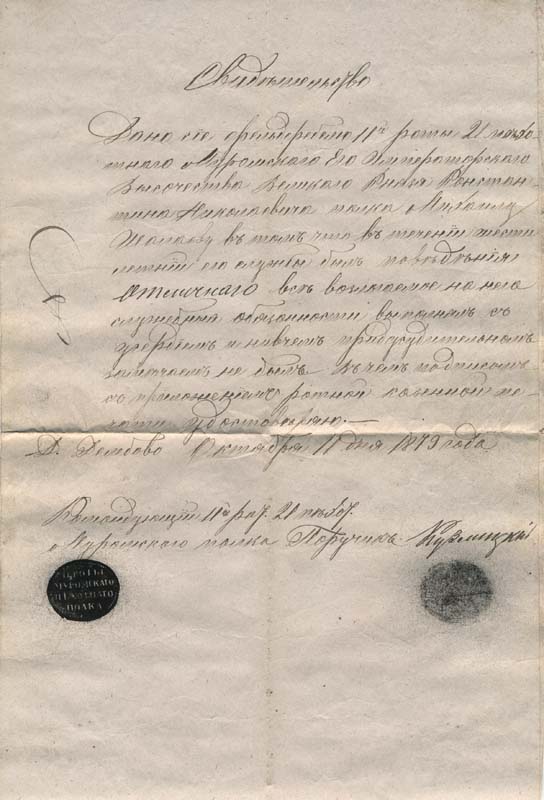 Свидѣтельство
Дано сіе фельдфебелю 11й роты 21 пѣхо-
тнаго Муромскаго Его Императорскаго
Высочества Великаго Князя Констан-
тина Николаевича полка Михаилу
въ томъ что въ теченіи шести
лѣтній его службы былъ поведенія
Отличнаго всѣ возлагаемое на него
служебныя обязанности выполнялъ съ
усердіемъ и ни въ чемъ предосудительномъ
замѣчаемъ не былъ. Въ чемъ подписомъ
съ приложеніемъ ротной казенной пе-
чати удостовѣряю.—
Д. Дембово Октября 11 дня 1879 года
Командующій 11й рот. 21 пѣхот.
Муромскаго полка Поручикъ Кузмицкій
РОТЫ
МУРОМСКАГО
ПѢХОТНАГО
ПОЛКА